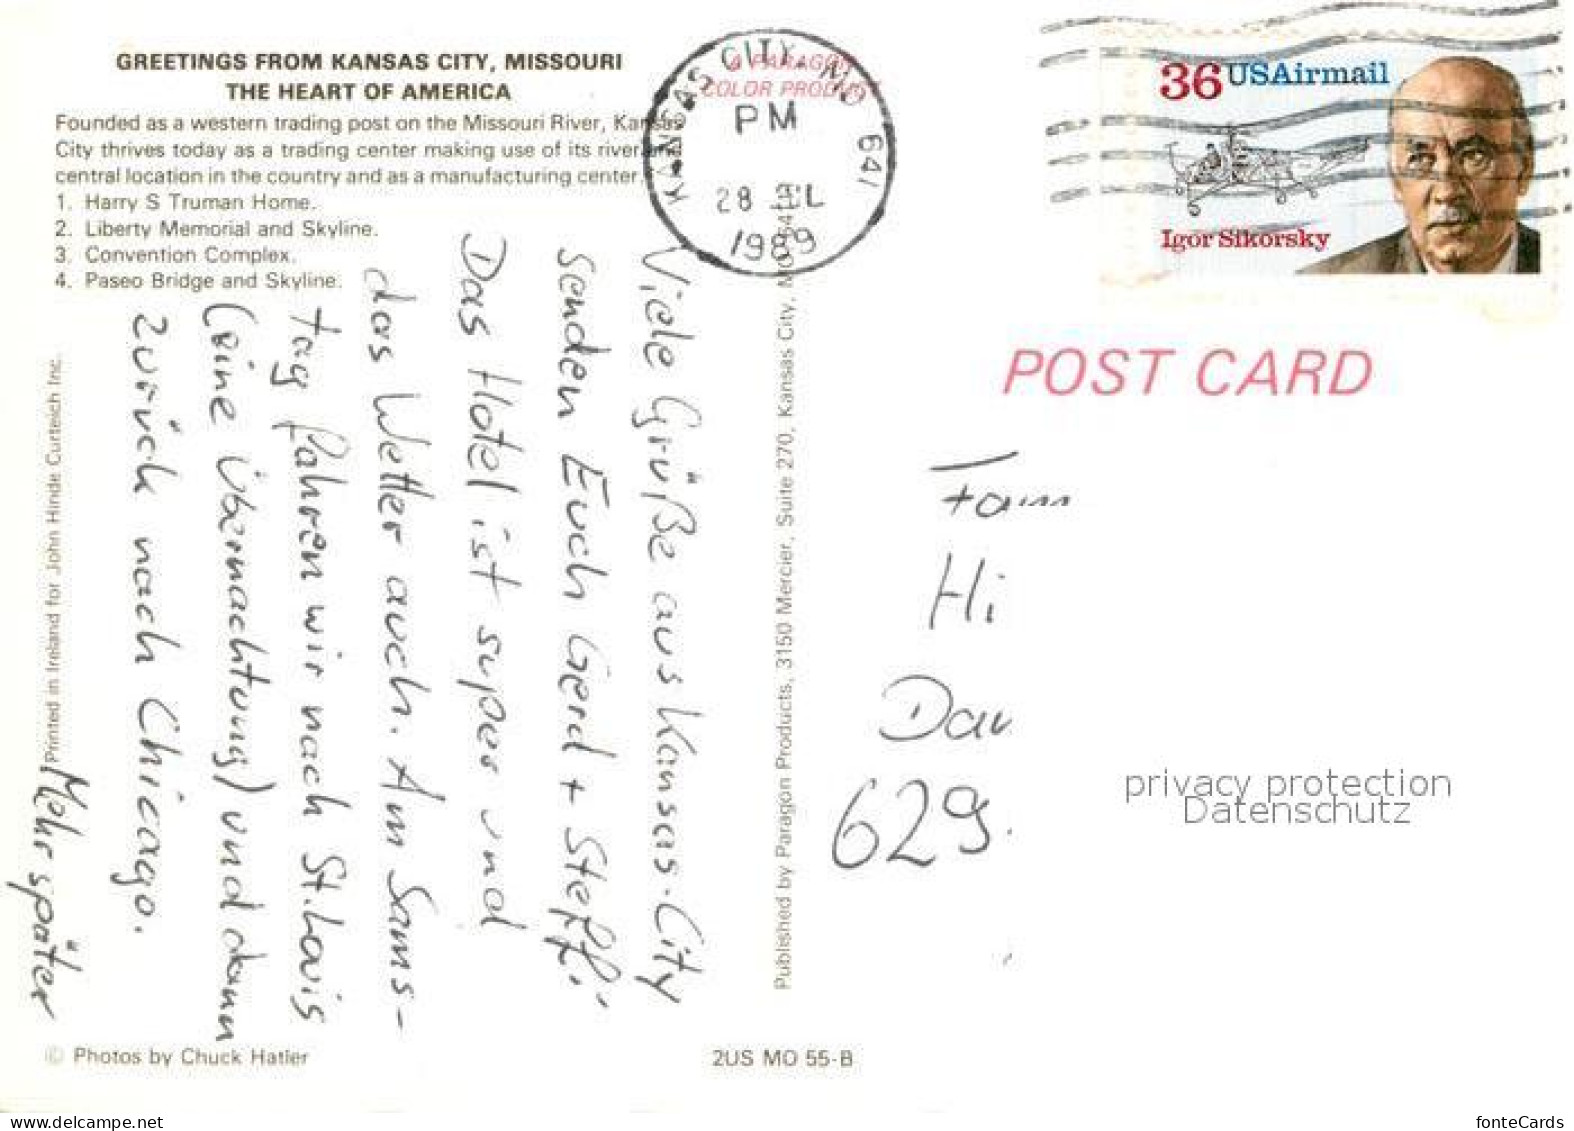 GREETINGS FROM KANSAS CITY, MISSOURI
THE HEART OF AMERICA
Founded as a western trading post on the Missouri River, Kansas
City thrives today as a trading center making use of its river and
central location in the country and as a manufacturing center.
1. Harry S Truman Home.
2. Liberty Memorial and Skyline.
3. Convention Complex.
4. Paseo Bridge and Skyline.
A PARAGON
COLOR PRODUCT
KANSAS CITY MO 641
PM
28 JUL
1989
36 USAirmail
Igor Sikorsky
POST CARD
Viele Grüße aus Kansas-City
senden Euch Gerd + Steffi
Das Hotel ist super und
das Wetter auch. Am Sams-
tag fahren wir nach St. Louis
(eine Übernachtung) und dann
zurück nach Chicago.
Mehr später
Printed in Ireland for John Hinde Curteich Inc.
Published by Paragon Products, 3150 Mercier, Suite 270, Kansas City, MO 641
Fam
Hi
Dau
629
privacy protection
Datenschutz
© Photos by Chuck Hatler
2US MO 55-B
www.delcampe.net
fonteCards